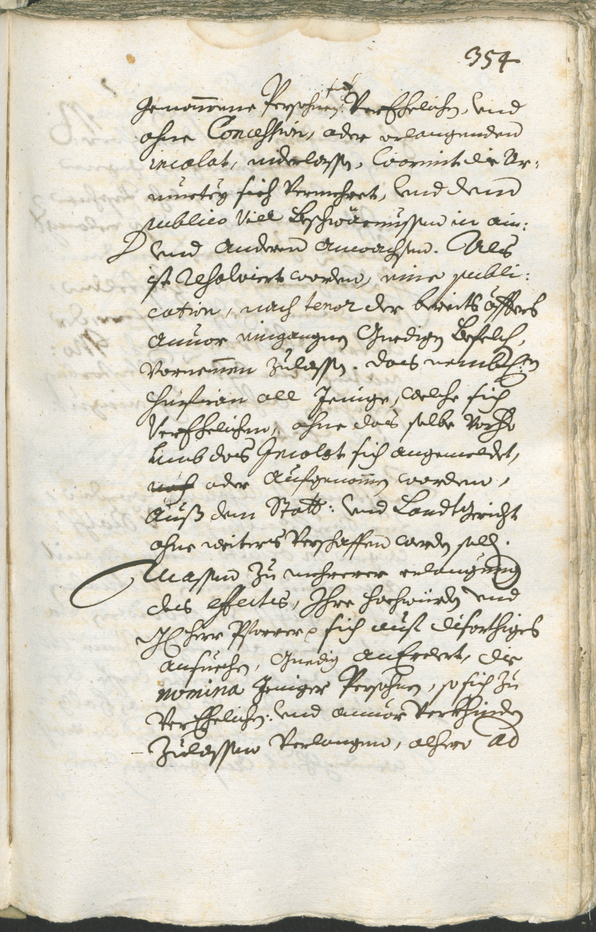 354
genommene Persohnen Verehelichen, und
ohne Concession, oder erlangenden
incolat, niderlassen, wormit die Ar¬
muetey sich vermehret, und dem
publico vill Beschwärnussen in ain:
und anderen anwachsen. Als
ist resolviert worden, eine publi:
cation, nach tenor der bereits öffters
anvor eingangnen Gnedigen Befelch,
vornemmen zulassen. das nemblichen
hinfüran all Jenige, welche sich
Verehelichen, ohne das selbe vorhero
umb das Incolat sich angemeldet,
oder aufgenommen worden,
auß dem Statt: und Landtgericht
ohne weiters verschaffen werden solle.
Massen zu mehrerer erlangung
des effectus, Ihre hochwürden und
Herr Pfarrer sich auf diforthiges
ansuechen, Gnedig anerdert, die
nomina Jeniger Persohnen, so sich zu
Verehelichen: und anvor verkhinden
zulassen verlangen, alhero ad